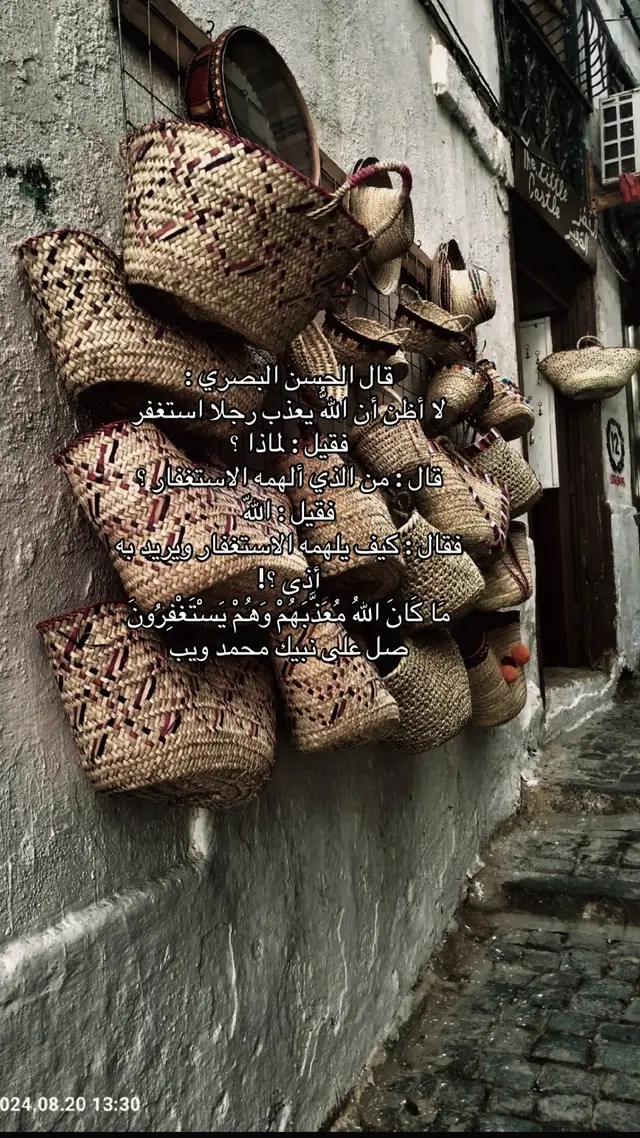 The Little
Castle
قال الحسن البصري :
لا أظن أن اللهَّ يعذب رجلا استغفر
فقيل : لماذا ؟
قال : من الذي ألهمه الاستغفار ؟
فقيل : اللهَّ
فقال : كيف يلهمه الاستغفار ويريد به
أذى ؟!
مَا كَانَ اللهُ مُعَذِّبَهُمْ وَهُمْ يَسْتَغْفِرُونَ
صل على نبيك محمد ويب
12
024.08.20 13:30